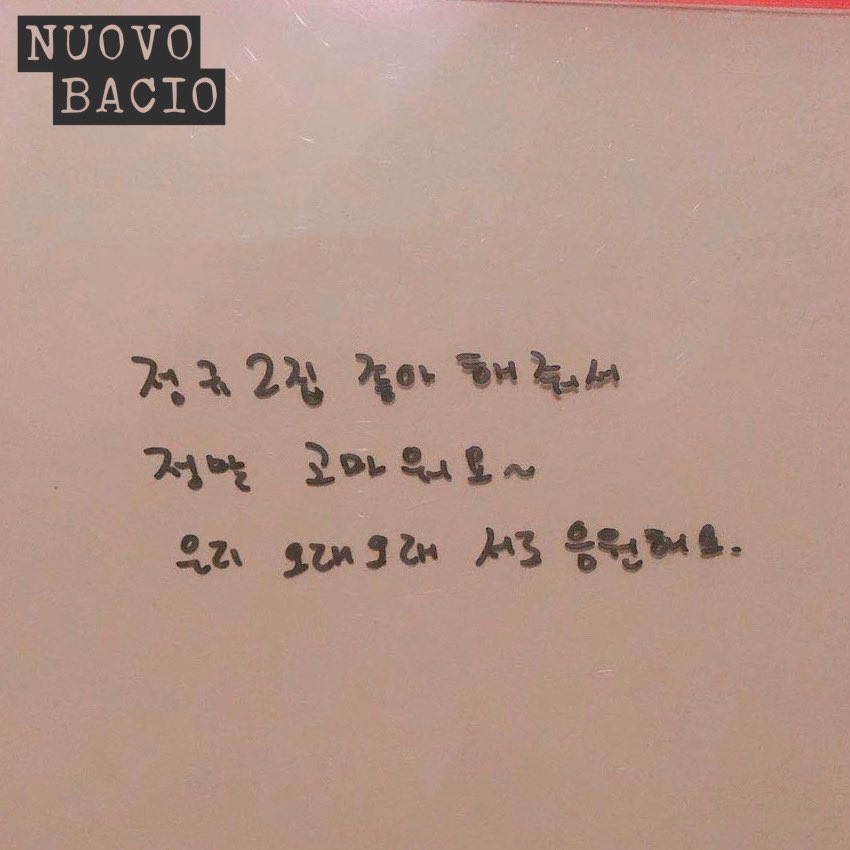 NUOVO
BACIO
정규2집 좋아해줘서
정말 고마워요~
우리 오래오래 서로 응원해요.